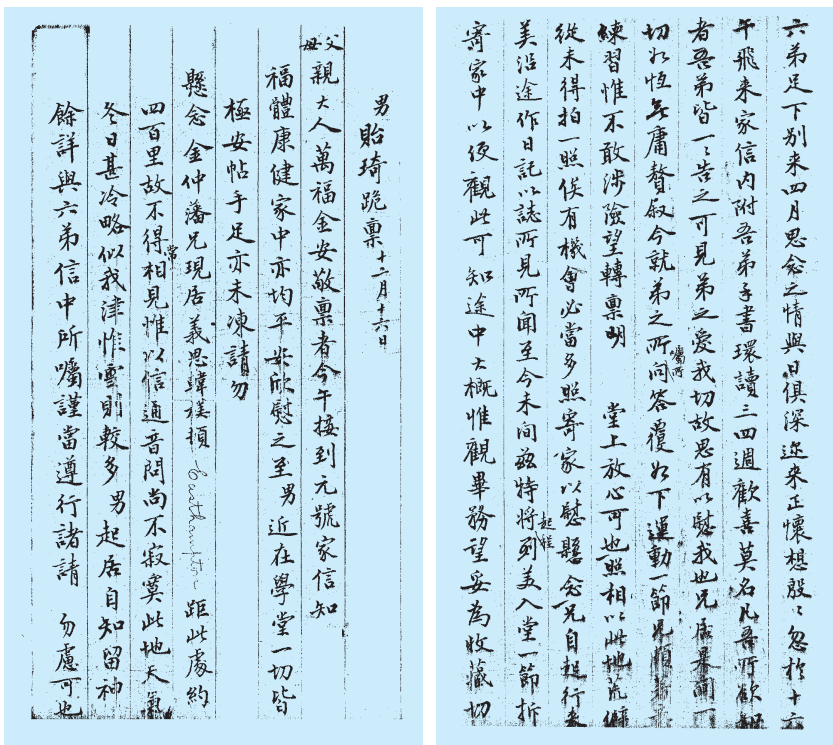 六弟足下別來四月思念之情與日俱深邇來正懷想殷〻忽於十六
午飛來家信內附吾弟手書環讀三四週歡喜莫名凡吾所欲知
者吾弟皆一一告之可見弟之愛我切故思有以慰我也兄居美
切如恆無庸贅敘今就弟之所囑所問答覆如下運動一節兄頗
練習惟不敢涉險望轉稟明 堂上放心可也照相以此地荒僻
從未得拍一照俟有機會必當多照寄家以慰懸念兄自起行來
美沿途作日記以誌所見所聞至今未間茲特將起程到美入堂一節折
寄家中以便觀此可知途中大概惟觀畢務望妥為收藏切
男貽琦跪稟十二月十六日
父母親大人萬福金安敬稟者今午接到元號家信知
福體康健家中亦均平安欣慰之至男近在學堂一切皆
極安帖手足亦未凍請勿
懸念 金仲藩兄現居義思韓樸頓 Easthampton 距此處約
四百里故不得常相見惟以信通音問尚不寂寞此地天氣
冬日甚冷略似我津惟雪則較多男起居自知留神
餘詳與六弟信中所囑謹當遵行諸請 勿慮可也